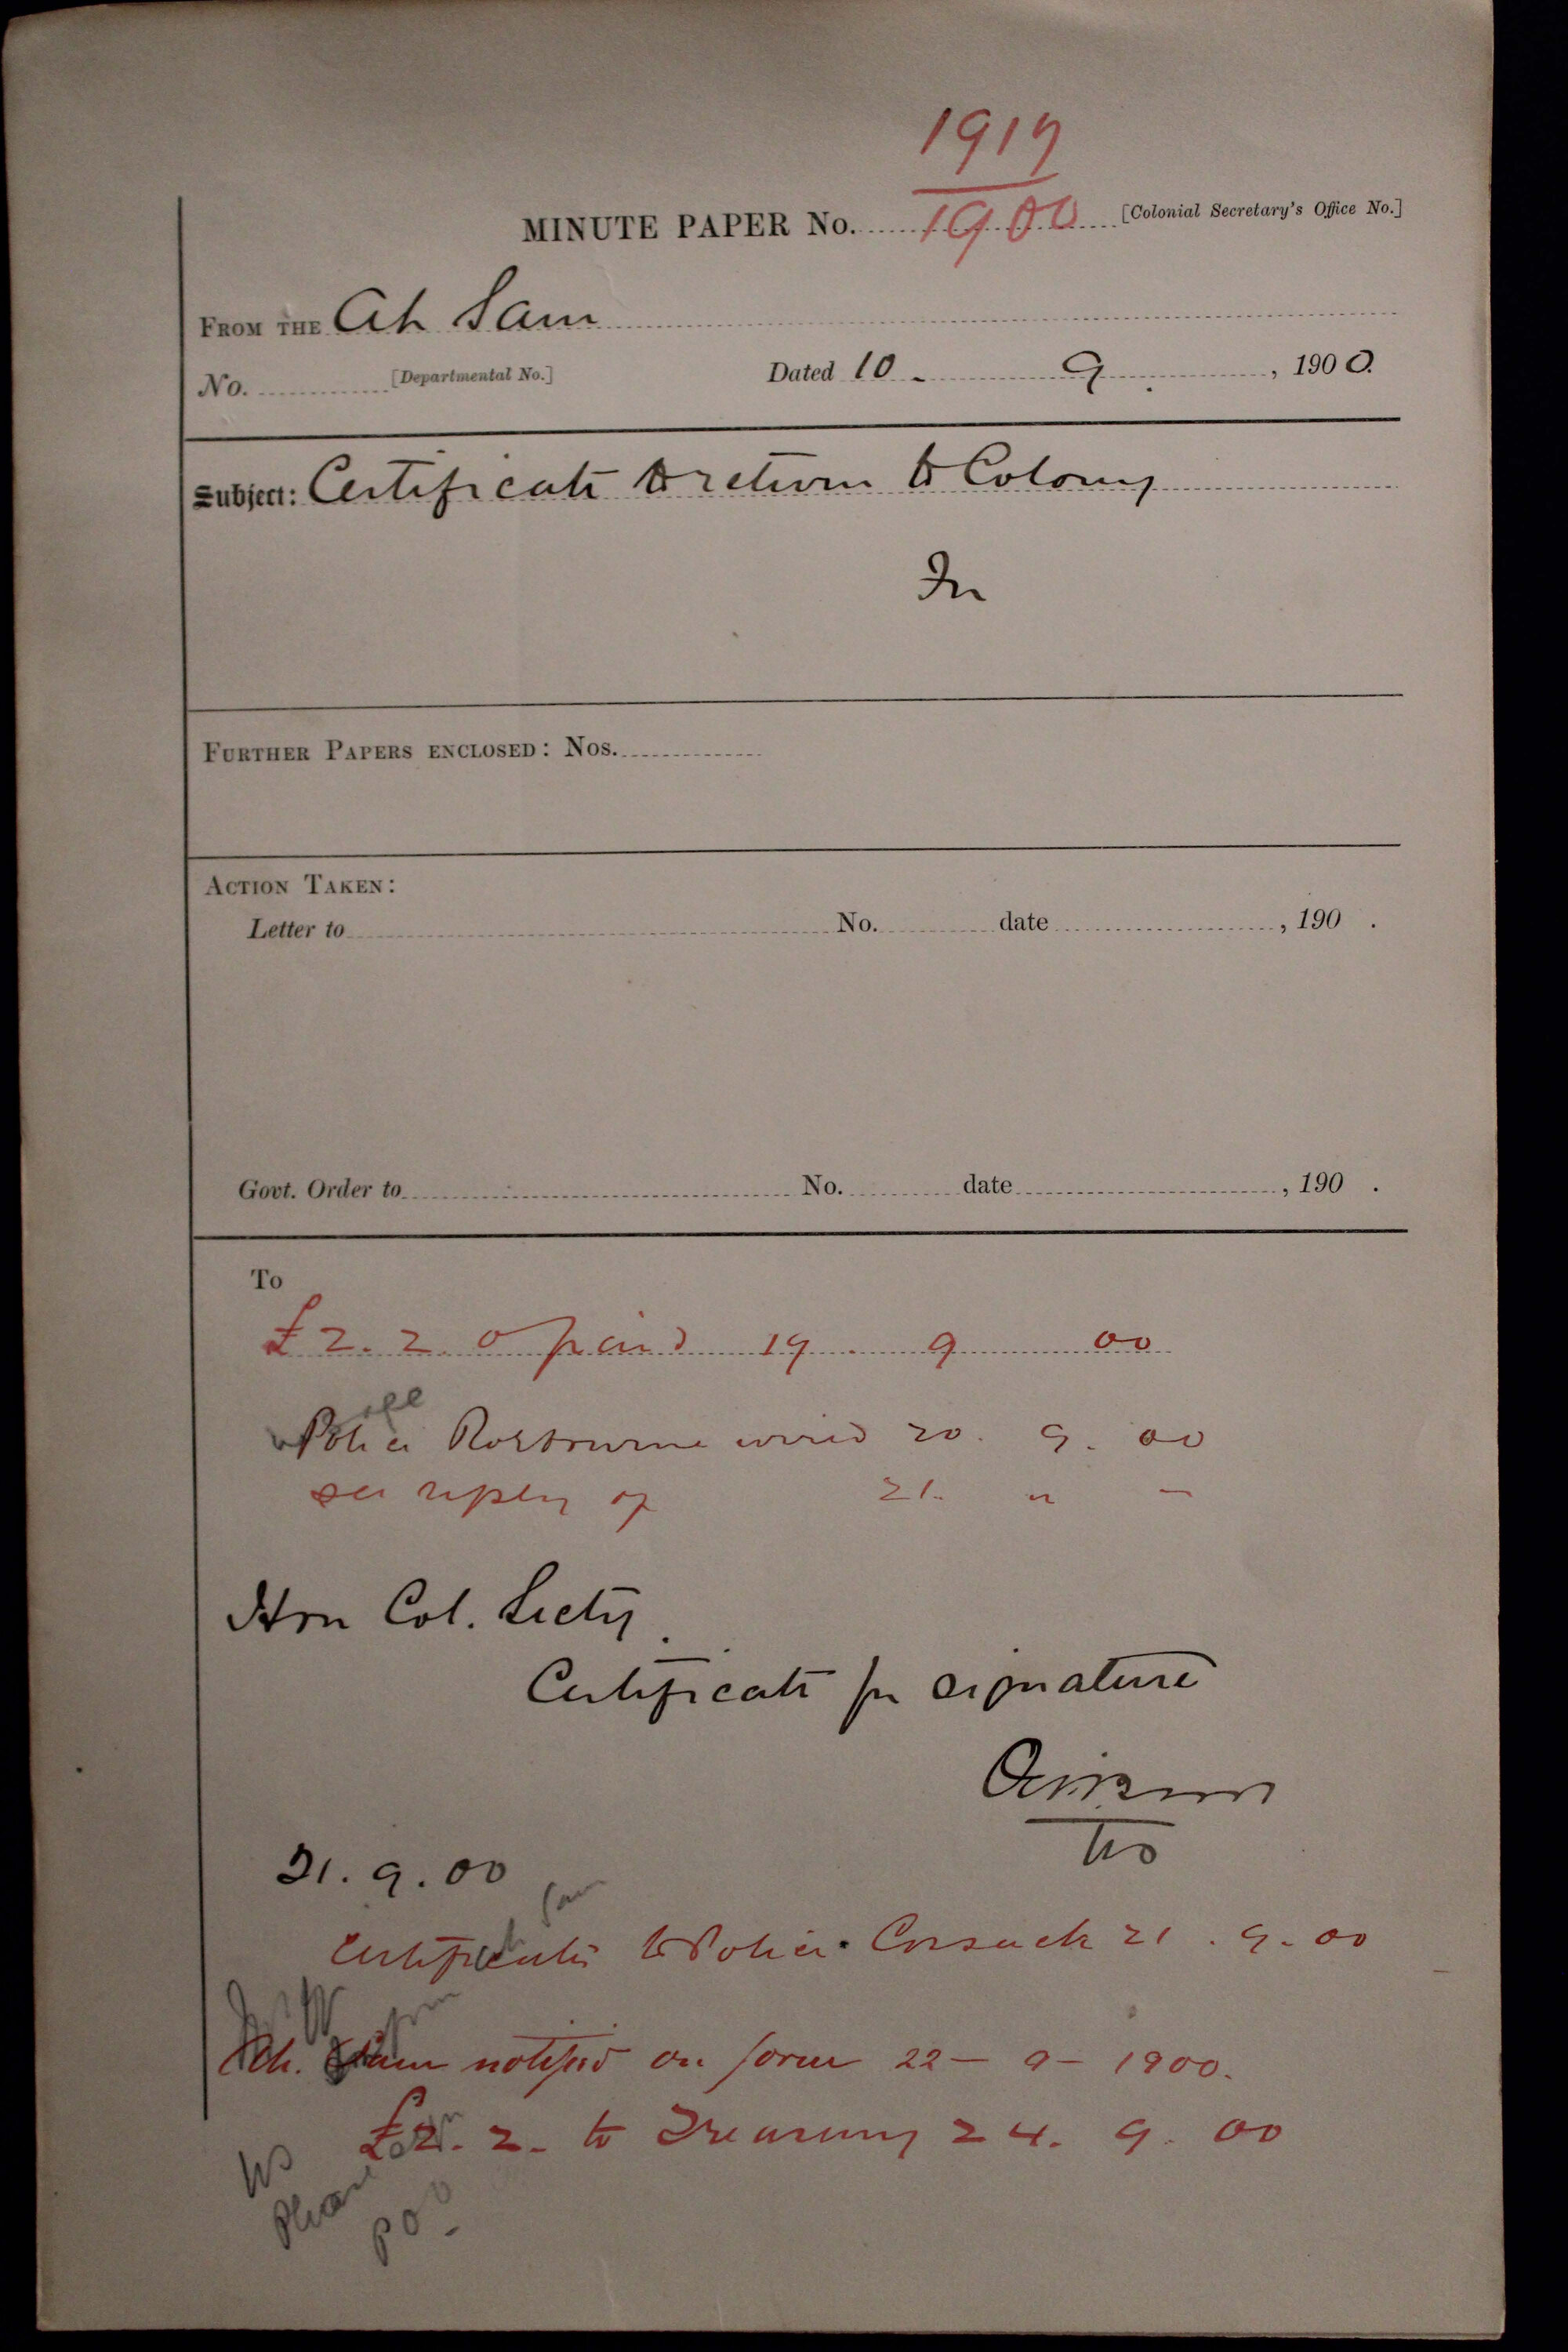 1917
MINUTE PAPER No. 1900 [Colonial Secretary's Office No.]
FROM THE Ah Sam
No. [Departmental No.] Dated 10 . 9 . , 1900.
Subject: Certificate to return to Colony
In
FURTHER PAPERS ENCLOSED: Nos.
ACTION TAKEN:
Letter to No. date , 190 .
Govt. Order to No. date , 190 .
To
£2. 2. 0 paid 19 . 9 00
Police Roebourne wired 20. 9. 00
see reply of 21. " –
Hon Col. Secty.
Certificate for signature
21. 9. 00
Certificate to Police Cossack 21 . 9. 00
Ah. Sam notified on form 22 – 9 – 1900.
£2. 2. to Treasury 24. 9. 00